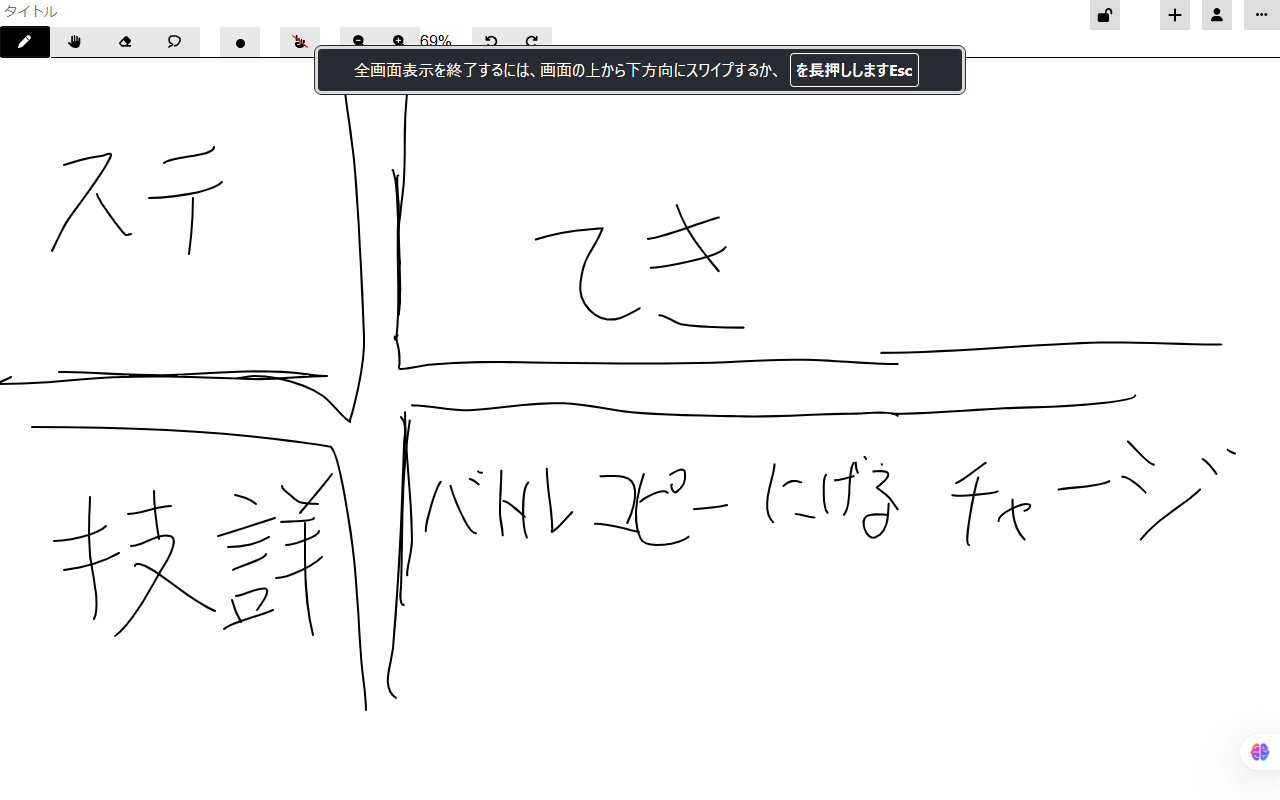 タイトル
69%
全画面表示を終了するには、画面の上から下方向にスワイプするか、 を長押ししますEsc
ステ
てき
技詳
バトル コピー にげる チャージ